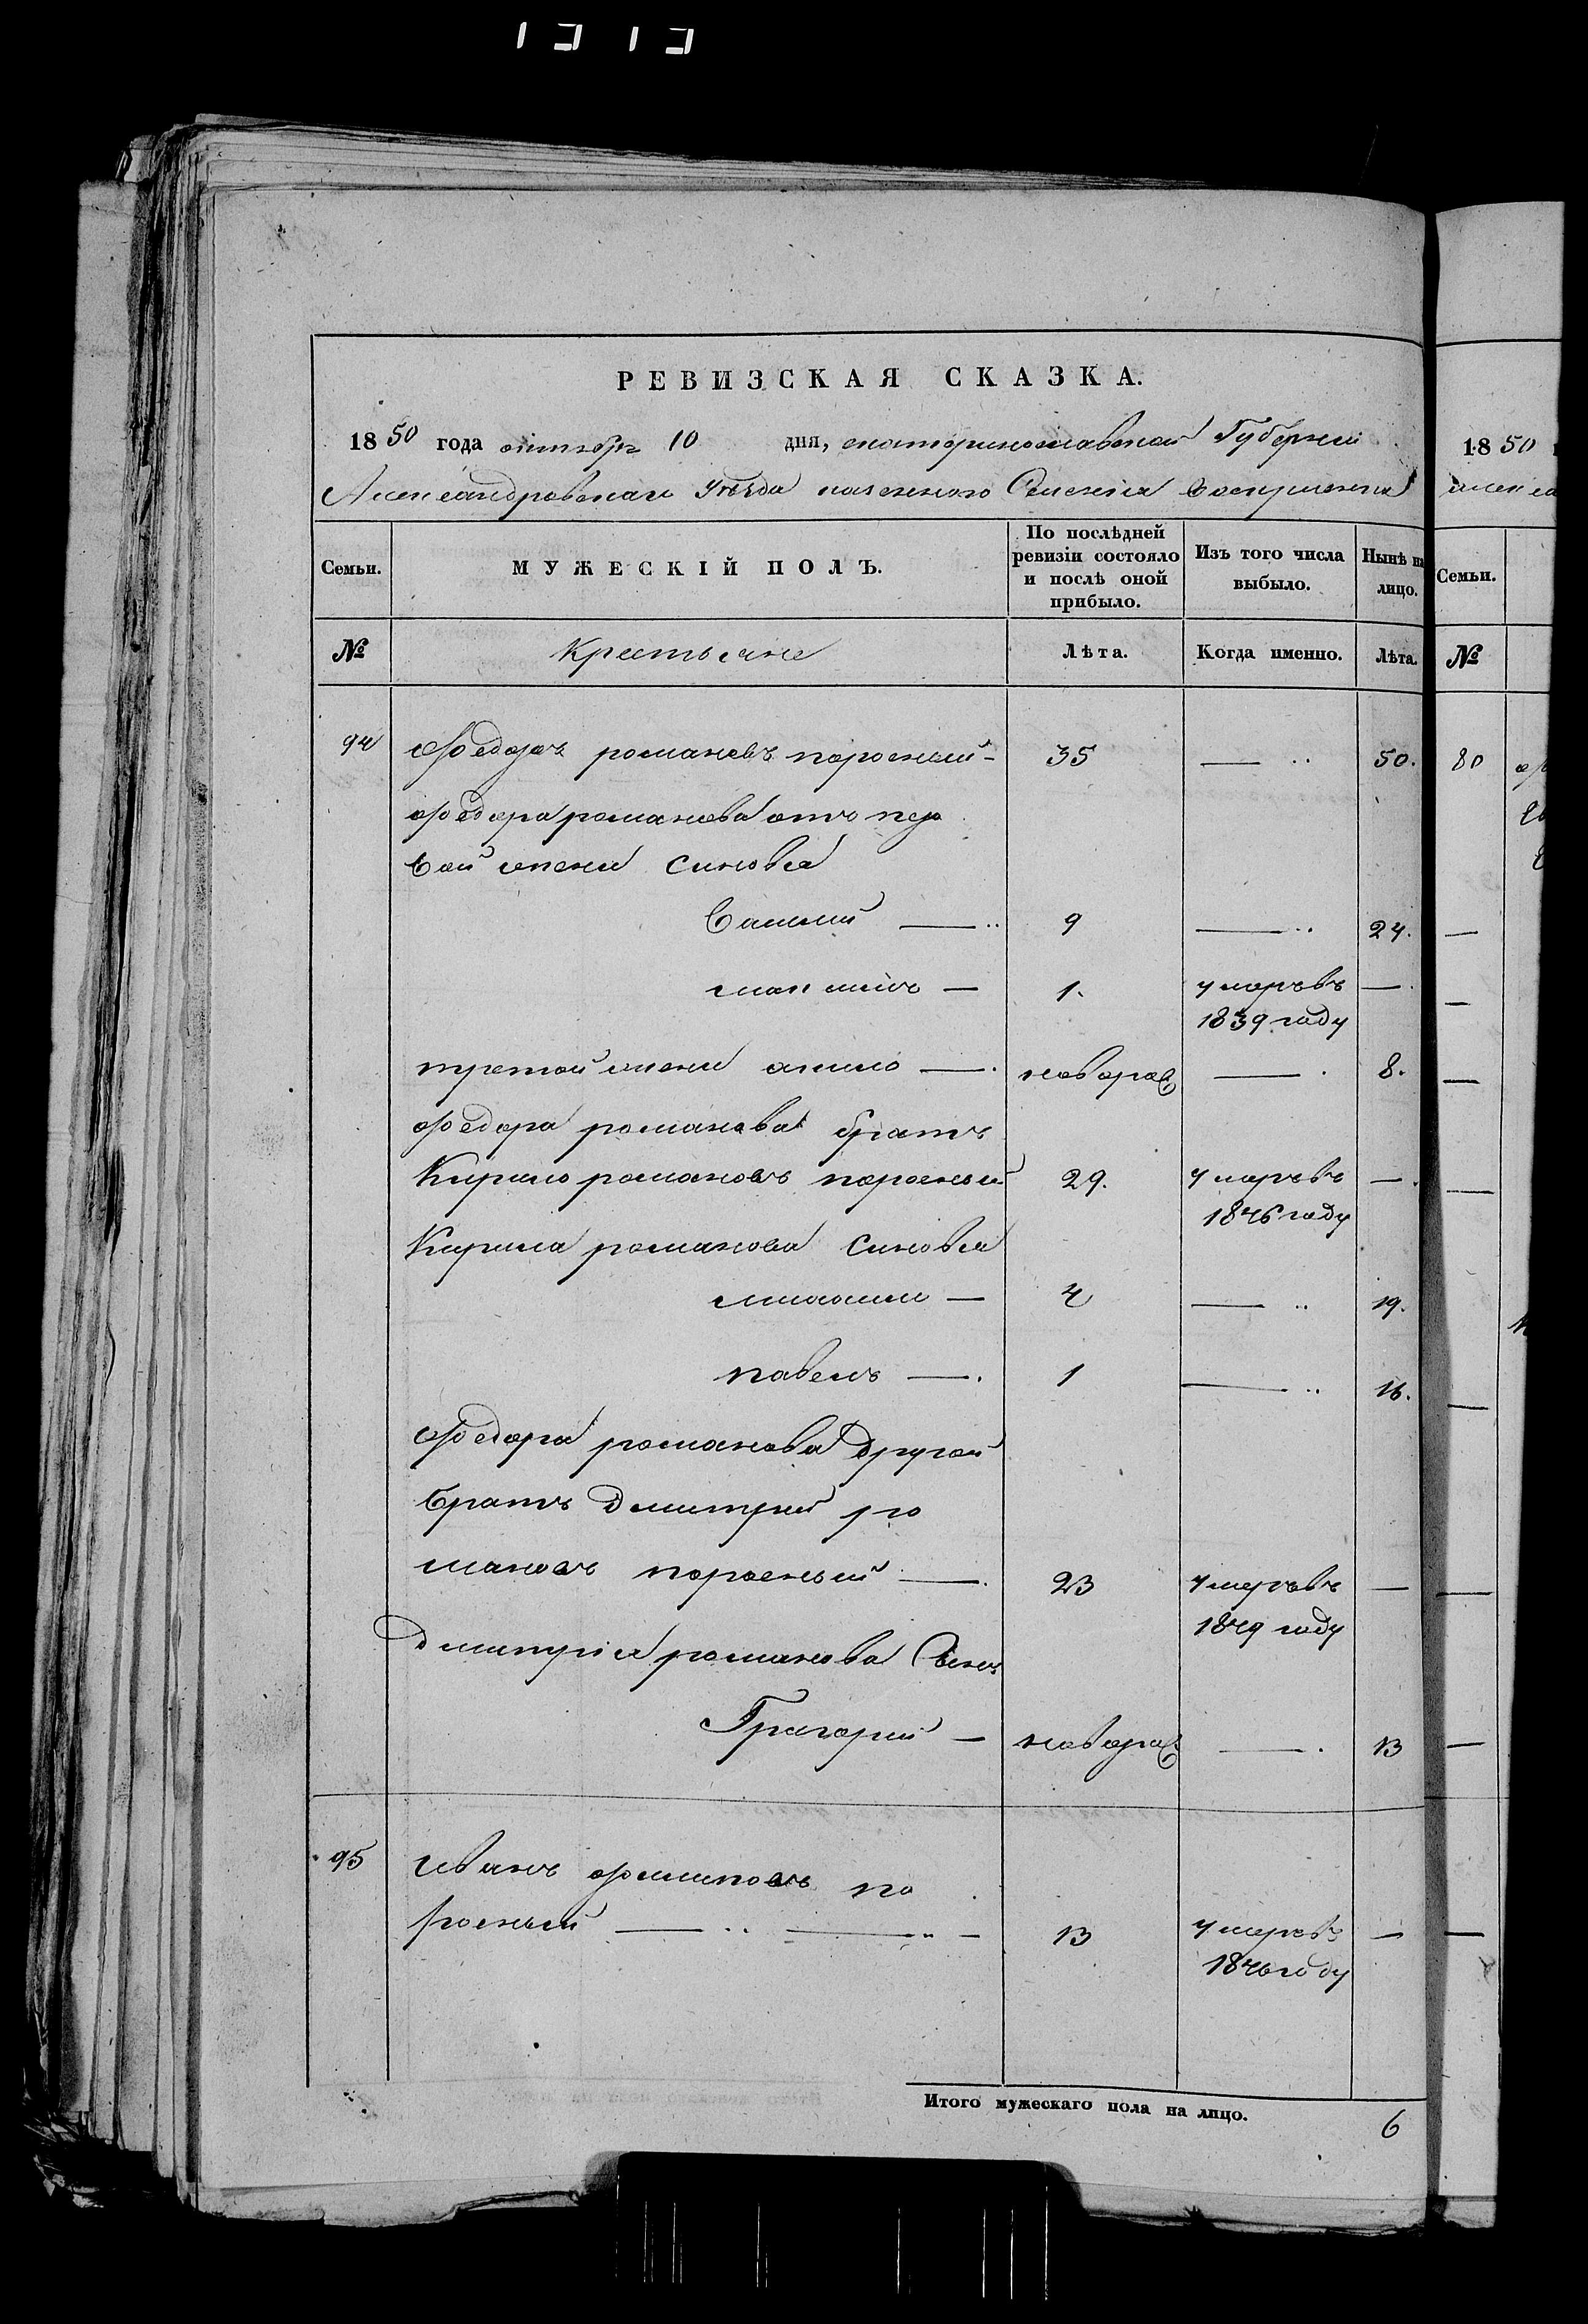 РЕВИЗСКАЯ СКАЗКА.
1850 года октября 10 дня, екатеринославской Губернии
Александровскаго уезда казенного Селения
Семьи. МУЖЕСКІЙ ПОЛЪ. По послѣдней ревизіи состояло и послѣ оной прибыло. Изъ того числа выбыло. Нынѣ на лицо.
№ Крестьяне Лѣта. Когда именно. Лѣта.
94 Федоръ романовъ поросный 35 — 50.
федора романова отъ пер
вой жены синовья
Василий — 9 — 24.
максимъ — 1. умеръ въ —
1839 году
третой жены данило — новорож — 8.
федора романова братъ
Кирило романовъ поросный 29. умеръ въ —
1846 году
Кирила романова синовья
4 — 19.
павелъ — 1 — 16.
федора романова другой
братъ дмитрий ро
мановъ поросный — 23 умеръ въ —
1849 году
дмитрія романова Сынъ
Григорий — новорож — 13
95 иванъ филиповъ по
росный — 13 умеръ въ —
1846 году
Итого мужескаго пола на лицо. 6
1850
Семьи.
№
80